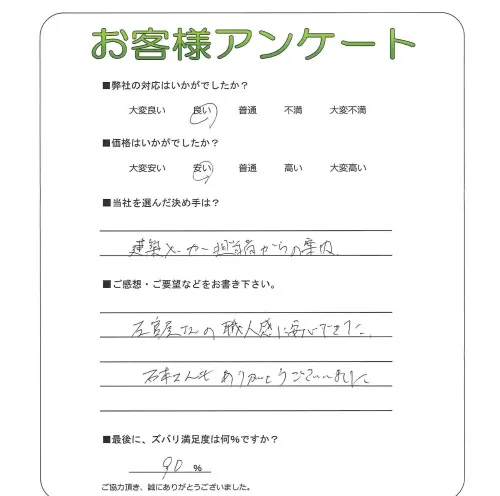 お客様アンケート
■弊社の対応はいかがでしたか？
大変良い 良い 普通 不満 大変不満
■価格はいかがでしたか？
大変安い 安い 普通 高い 大変高い
■当社を選んだ決め手は？
建築メーカー担当者からの案内
■ご感想・ご要望などをお書き下さい。
左官屋さんの職人感に安心できた。
ありがとうございました
■最後に、ズバリ満足度は何%ですか？
90 %
ご協力頂き、誠にありがとうございました。